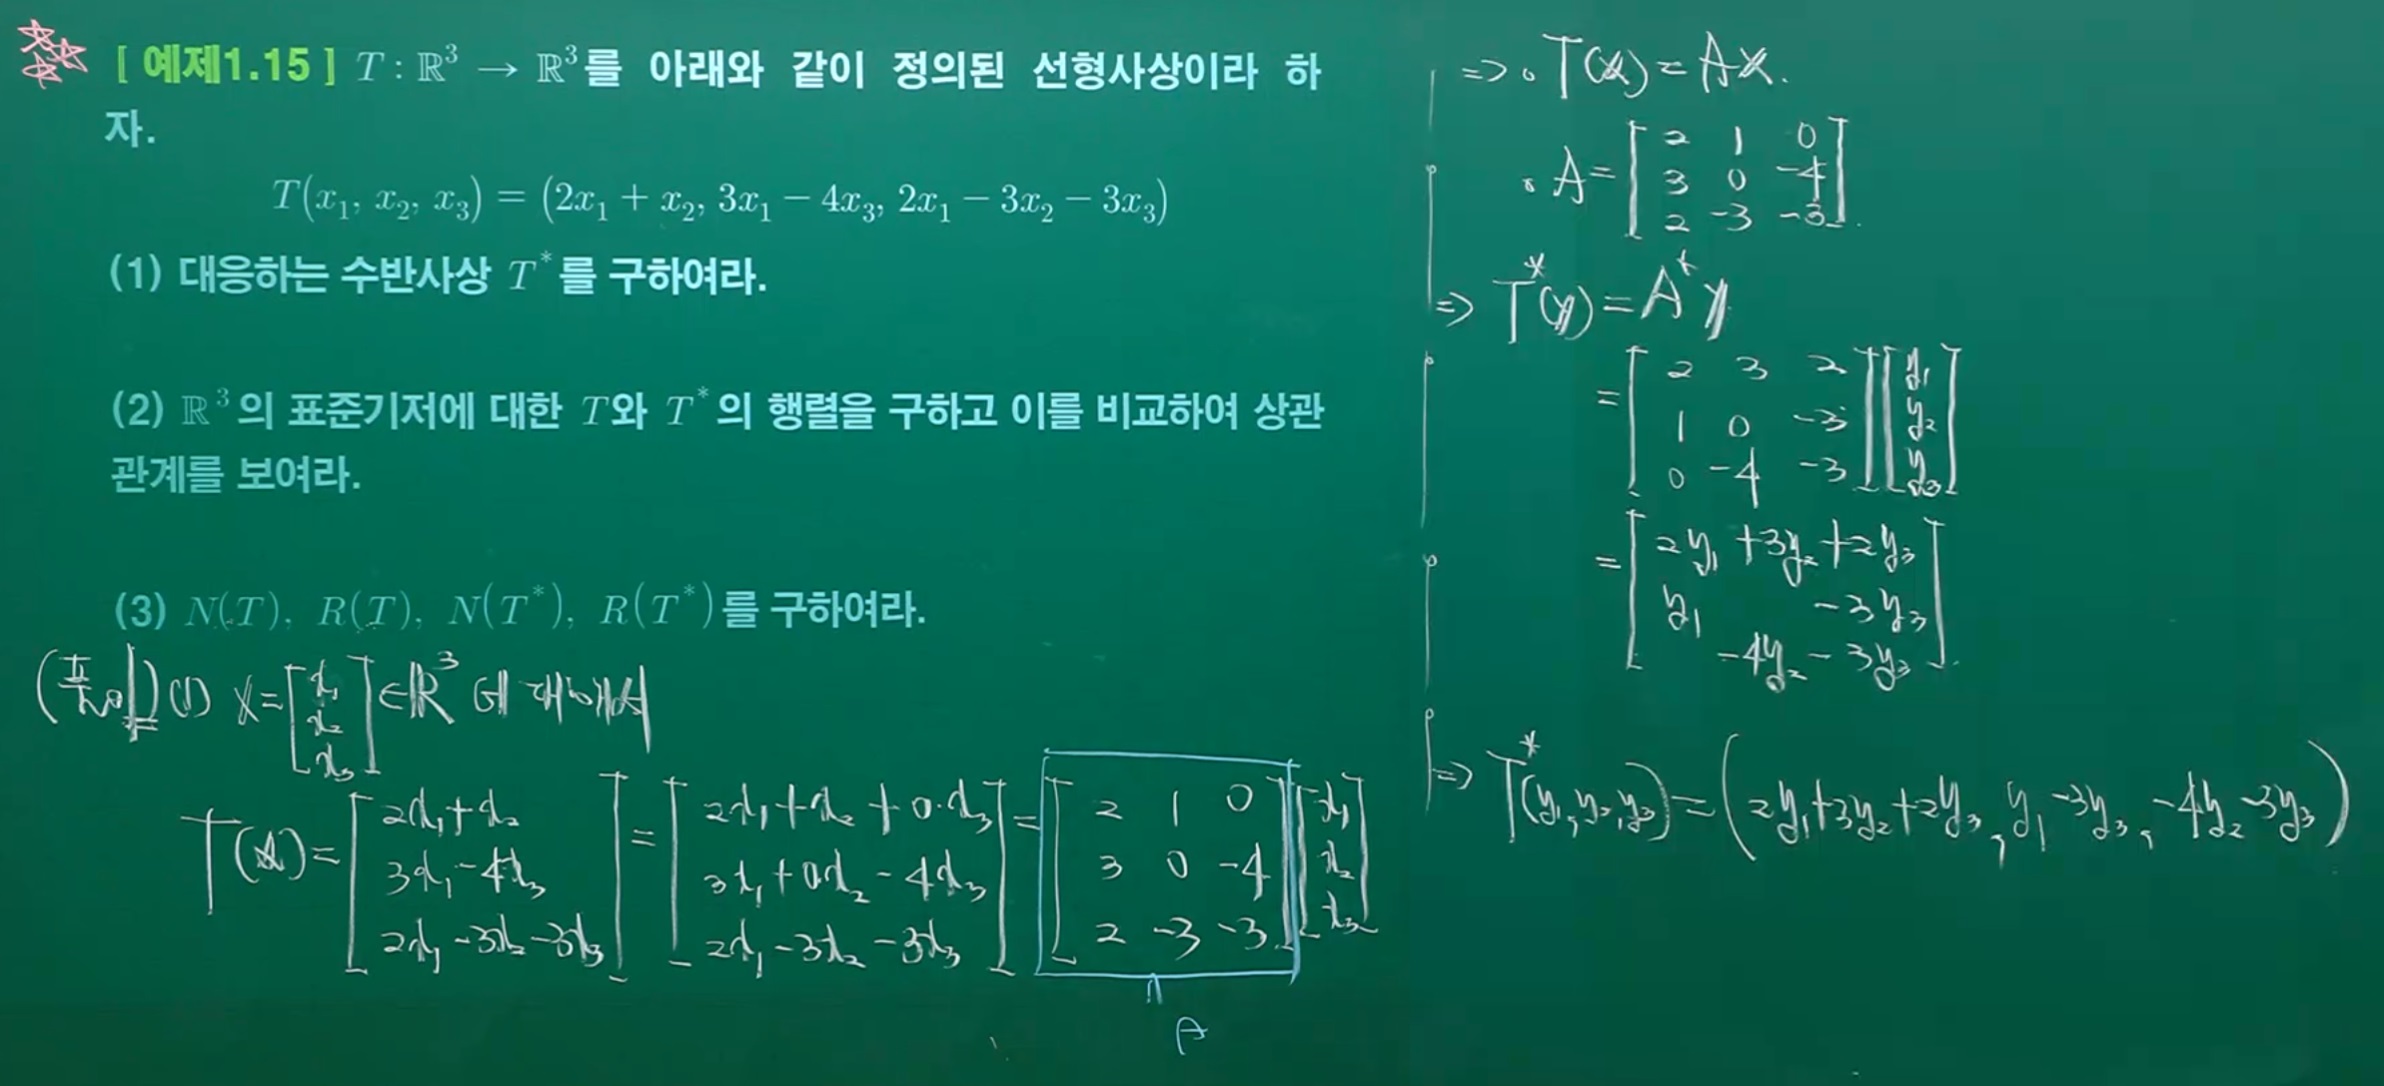 [ 예제1.15 ] T : ℝ³ → ℝ³를 아래와 같이 정의된 선형사상이라 하
자.
T(x₁, x₂, x₃) = (2x₁ + x₂, 3x₁ − 4x₃, 2x₁ − 3x₂ − 3x₃)
(1) 대응하는 수반사상 T*를 구하여라.
(2) ℝ³의 표준기저에 대한 T와 T*의 행렬을 구하고 이를 비교하여 상관
관계를 보여라.
(3) N(T), R(T), N(T*), R(T*)를 구하여라.
(풀이) (1) x = [x₁ x₂ x₃] ∈ ℝ³ 에 대해서
T(x) = [2x₁+x₂ ; 3x₁−4x₃ ; 2x₁−3x₂−3x₃] = [2x₁+x₂+0·x₃ ; 3x₁+0x₂−4x₃ ; 2x₁−3x₂−3x₃] = [2 1 0 ; 3 0 −4 ; 2 −3 −3] [x₁ ; x₂ ; x₃]
A
=> T(x) = Ax.
A = [2 1 0 ; 3 0 −4 ; 2 −3 −3].
=> T*(y) = A*y
= [2 3 2 ; 1 0 −3 ; 0 −4 −3] [y₁ ; y₂ ; y₃]
= [2y₁+3y₂+2y₃ ; y₁ −3y₃ ; −4y₂−3y₃].
=> T*(y₁, y₂, y₃) = (2y₁+3y₂+2y₃, y₁−3y₃, −4y₂−3y₃)